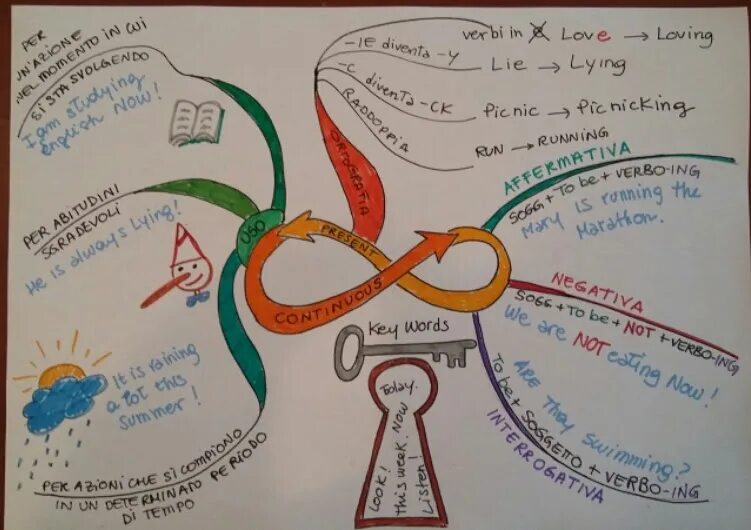 PER
UN'AZIONE
NEL MOMENTO IN CUI
SI STA SVOLGENDO
I am studying
english NOW!
PER ABITUDINI
SGRADEVOLI
He is always Lying!
It is raining
a lot this
summer!
PER AZIONI CHE SI COMPIONO
IN UN DETERMINATO PERIODO
DI TEMPO
USO
PRESENT
CONTINUOUS
ORTOGRAFIA
verbi in e Love → Loving
-IE diventa -Y Lie → Lying
-C diventa -CK Picnic → Picnicking
RADDOPPIA RUN → RUNNING
AFFERMATIVA
SOGG + To be + VERBO-ING
Mary is running the
Marathon.
NEGATIVA
SOGG + To be + NOT + VERBO-ING
We are NOT eating Now!
ARE They swimming?
To be + SOGGETTO + VERBO-ING
INTERROGATIVA
Key Words
Today.
Look!
this week. Now
Listen!